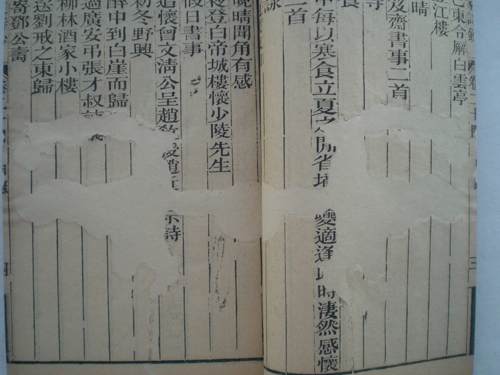 東令廨白雲亭
江樓
晴
及齋書事二首
食
中每以寒食立夏之間省墳 夔適逢 時淒然感懷
二首
詠
晚晴聞角有感
登白帝城樓懷少陵先生
假日書事
追懷曾文清公呈趙教 趙近 示詩
初冬野興
醉中到白崖而歸
過廣安弔張才叔
柳林酒家小樓
送劉戒之東歸
寄鄧公壽